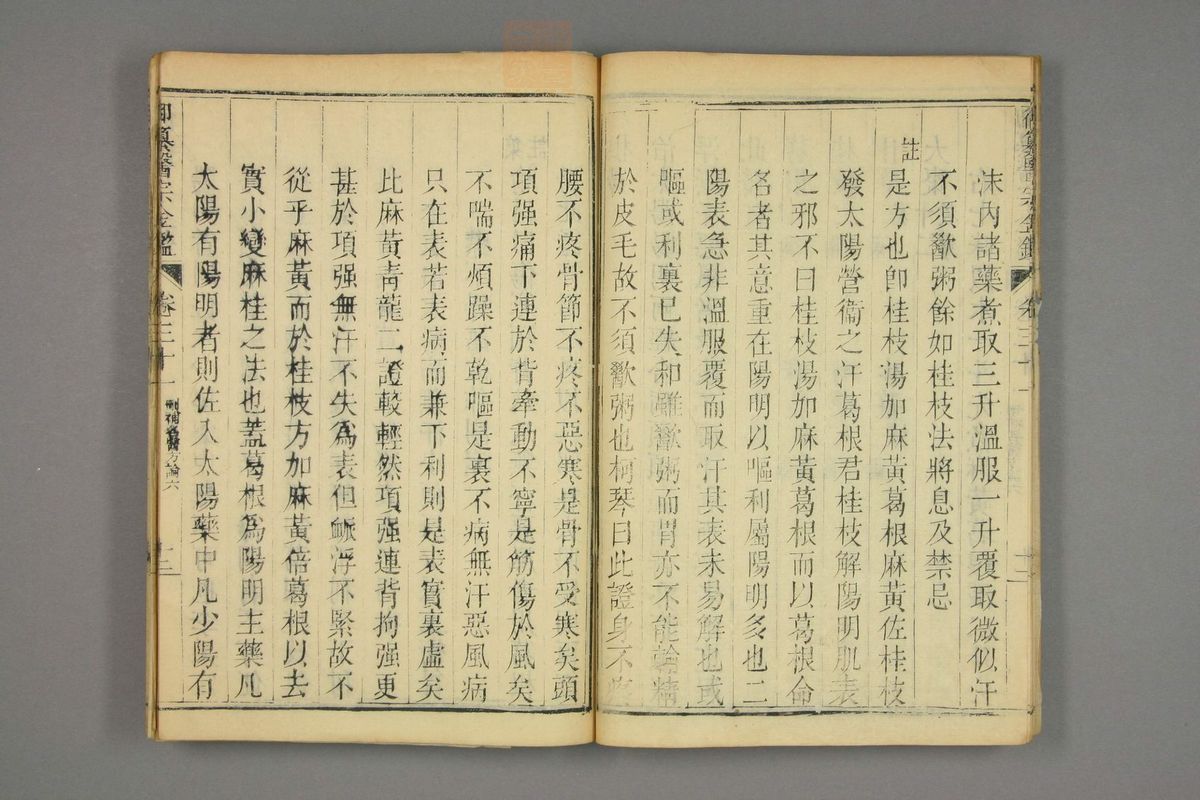 沫內諸藥煮取三升溫服一升覆取微似汗
不須歠粥餘如桂枝法將息及禁忌
註
是方也卽桂枝湯加麻黃葛根麻黃佐桂枝
發太陽營衛之汗葛根君桂枝解陽明肌表
之邪不曰桂枝湯加麻黃葛根而以葛根命
名者其意重在陽明以嘔利屬陽明多也二
陽表急非溫服覆而取汗其表未易解也或
嘔或利裏已失和雖歠粥而胃亦不能輸精
於皮毛故不須歠粥也柯琴曰此證身不疼
腰不疼骨節不疼不惡寒是骨不受寒矣頭
項强痛下連於背牽動不寧是筋傷於風矣
不喘不煩躁不乾嘔是裏不病無汗惡風病
只在表若表病而兼下利則是表實裏虛矣
比麻黃靑龍二證較輕然項强連背拘强更
甚於項强無汗不失爲表但脈浮不緊故不
從乎麻黃而於桂枝方加麻黃倍葛根以去
實小變麻桂之法也蓋葛根爲陽明主藥凡
太陽有陽明者則佐入太陽藥中凡少陽有
御纂醫宗金鑑
卷三十一
刪補名醫方論六